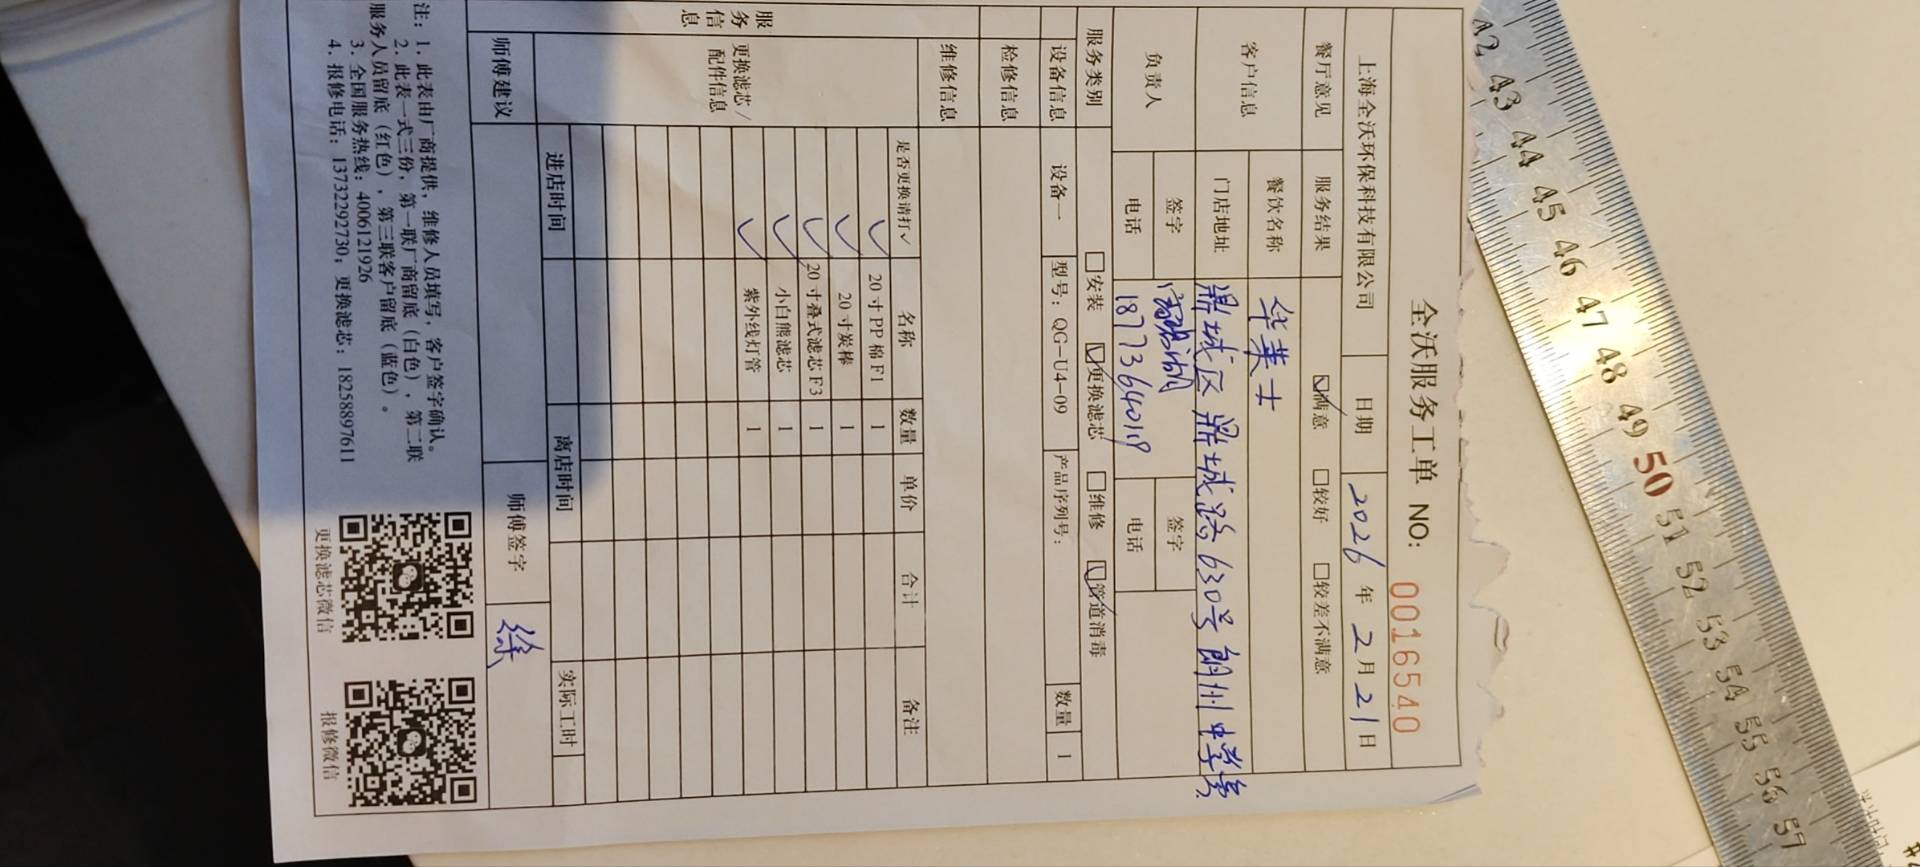 全沃服务工单 NO: 0016540
上海全沃环保科技有限公司 日期 2026年2月21日
餐厅意见 服务结果 ☑满意 □较好 □较差不满意
客户信息 餐饮名称 华莱士
门店地址 鼎城区鼎城路630号朗州中学旁
负责人 签字 签字
电话 18773640119 电话
服务类别 □安装 ☑更换滤芯 □维修 ☑管道消毒
设备信息 设备一 型号：QG-U4-09 产品序列号： 数量 1
检修信息
维修信息
服务信息
更换滤芯/配件信息
是否更换请打✓ 名称 数量 单价 合计 备注
✓ 20寸PP棉F1 1
✓ 20寸炭棒 1
✓ 20寸叠式滤芯F3 1
✓ 小白熊滤芯 1
✓ 紫外线灯管 1
进店时间 离店时间 实际工时
师傅建议 师傅签字 徐
注：1. 此表由厂商提供，维修人员填写，客户签字确认。
2. 此表一式三份，第一联厂商留底（白色），第二联
服务人员留底（红色），第三联客户留底（蓝色）。
3. 全国服务热线：4006121926
4. 报修电话：13732292730；更换滤芯：18258897611
更换滤芯微信 报修微信
42 43 44 45 46 47 48 49 50 51 52 53 54 55 56 57